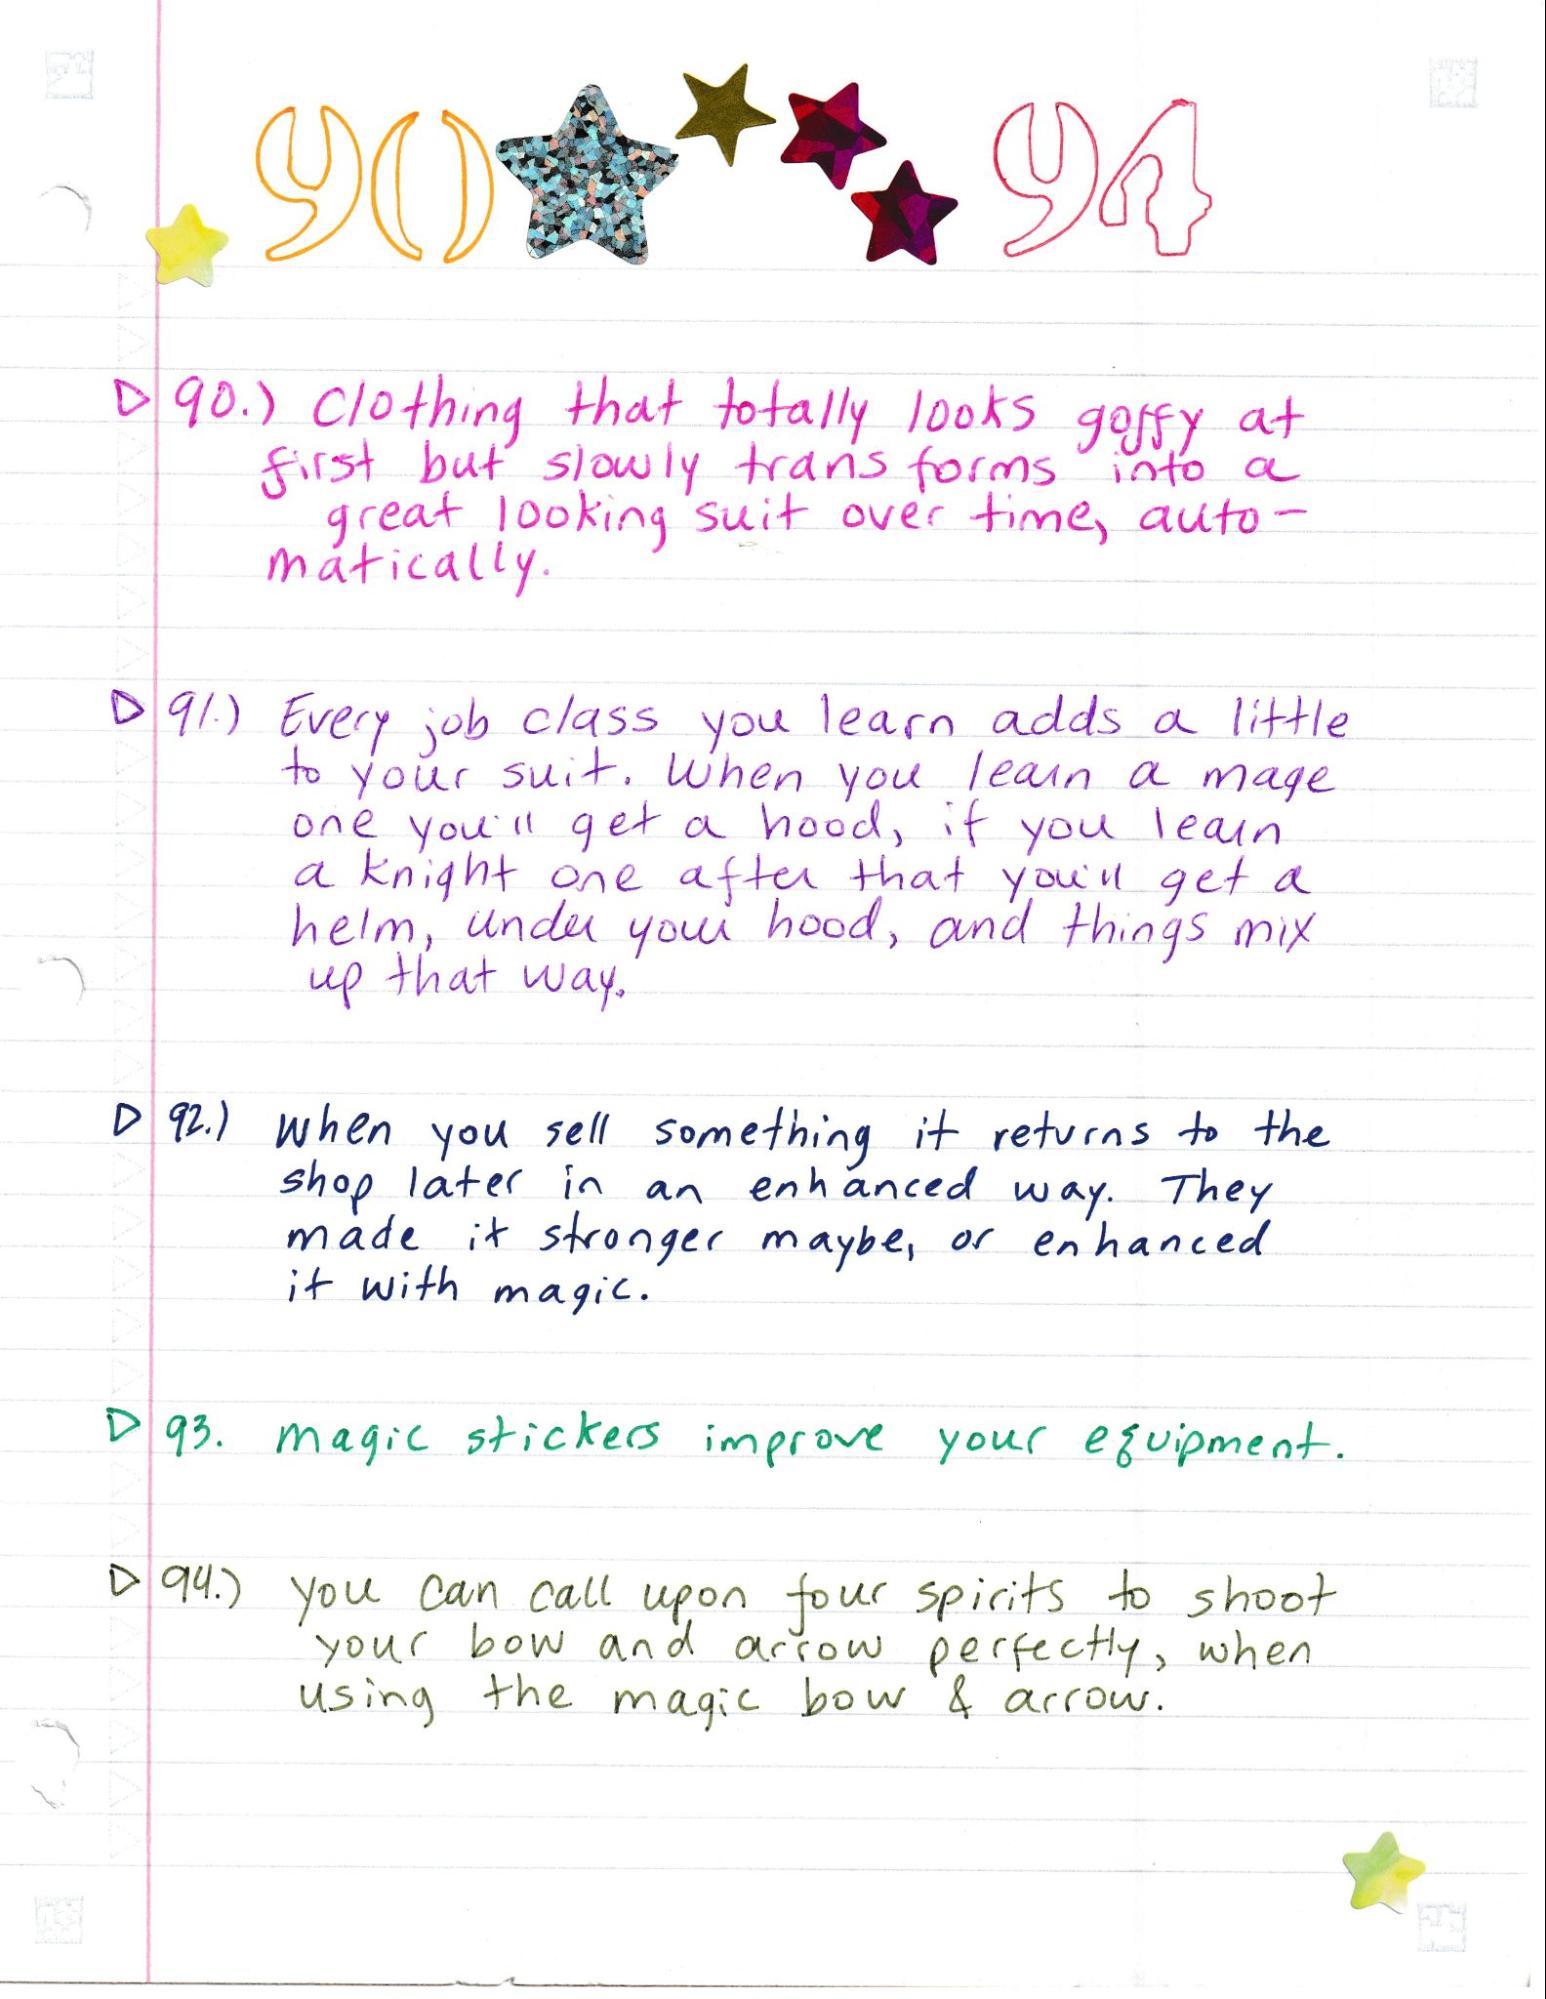 90 94
90.) Clothing that totally looks goffy at
first but slowly transforms into a
great looking suit over time, auto-
matically.
91.) Every job class you learn adds a little
to your suit. When you learn a mage
one you'll get a hood, if you learn
a knight one after that you'll get a
helm, under your hood, and things mix
up that way.
92.) When you sell something it returns to the
shop later in an enhanced way. They
made it stronger maybe, or enhanced
it with magic.
93. magic stickers improve your equipment.
94.) you can call upon four spirits to shoot
your bow and arrow perfectly, when
using the magic bow & arrow.